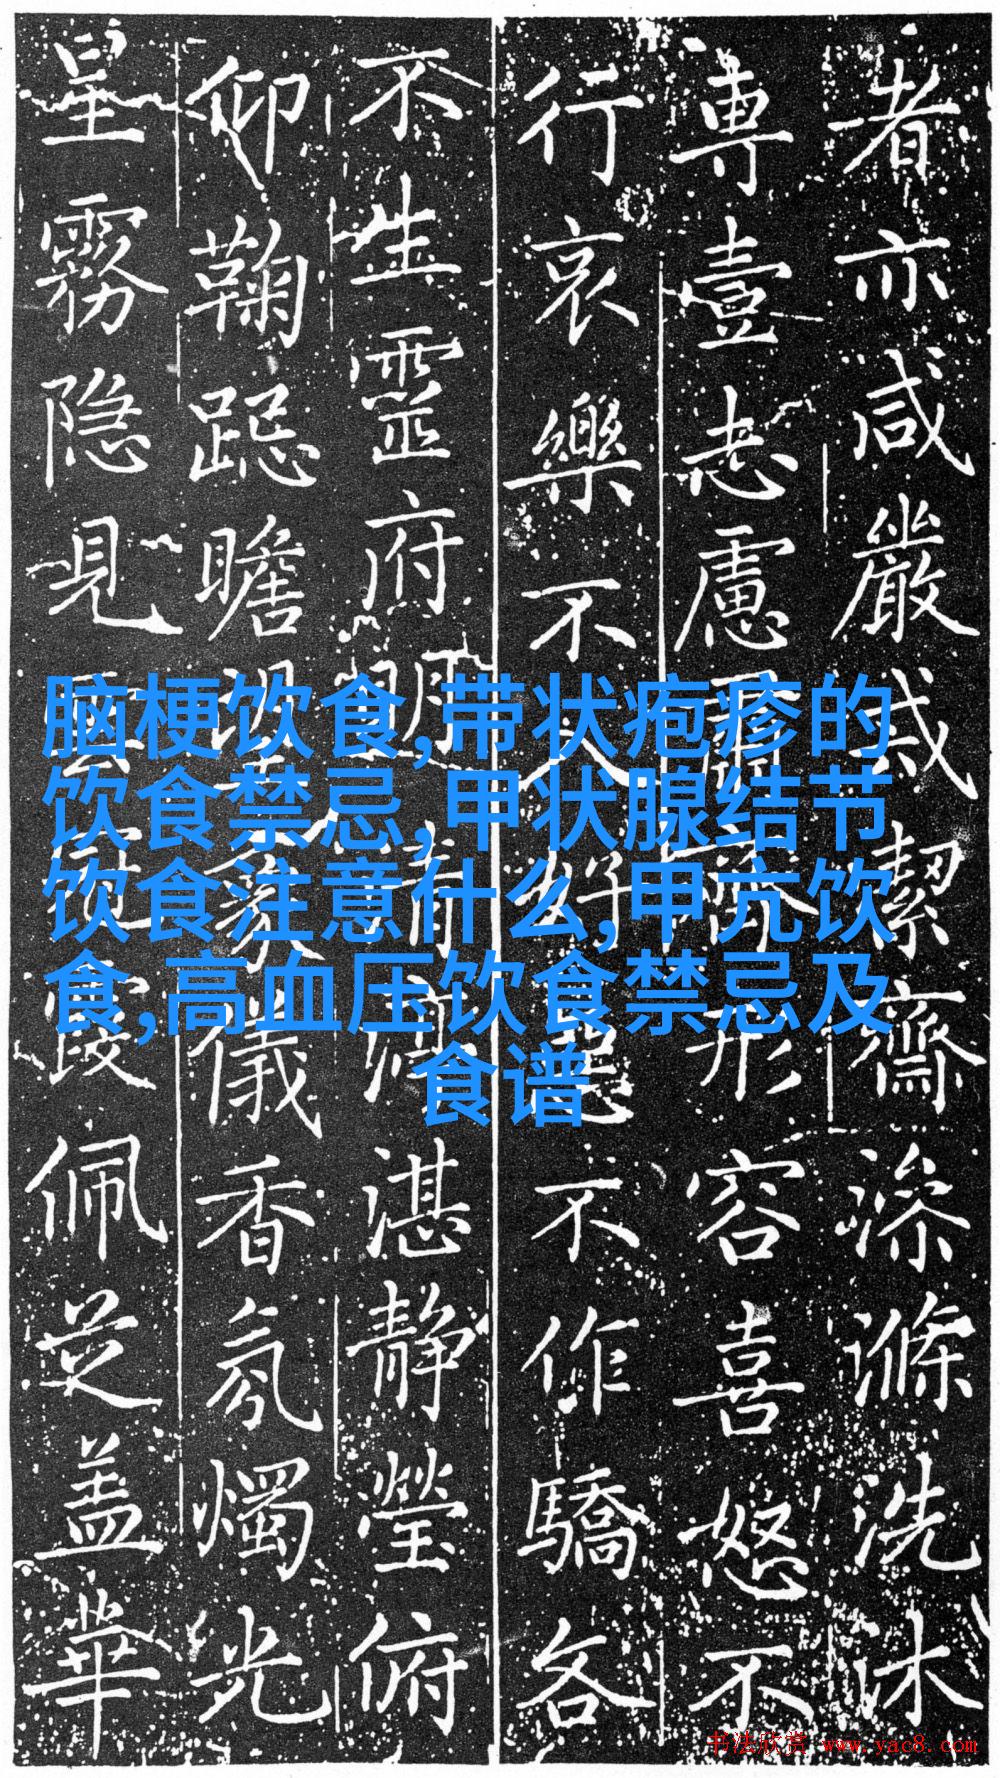 者亦咸嚴潔齋澡滌洗沐
專壹志慮齊形容喜怒不
行哀樂不好惡不作驕各
不生靈府明清湛静瑩俯
仰鞠跽瞻望象儀香氛燭光
星霧隐見霞佩芝盖華
脑梗饮食,带状疱疹的
饮食禁忌,甲状腺结节
饮食注意什么,甲亢饮
食,高血压饮食禁忌及
食谱
书法欣赏 www.yac8.com